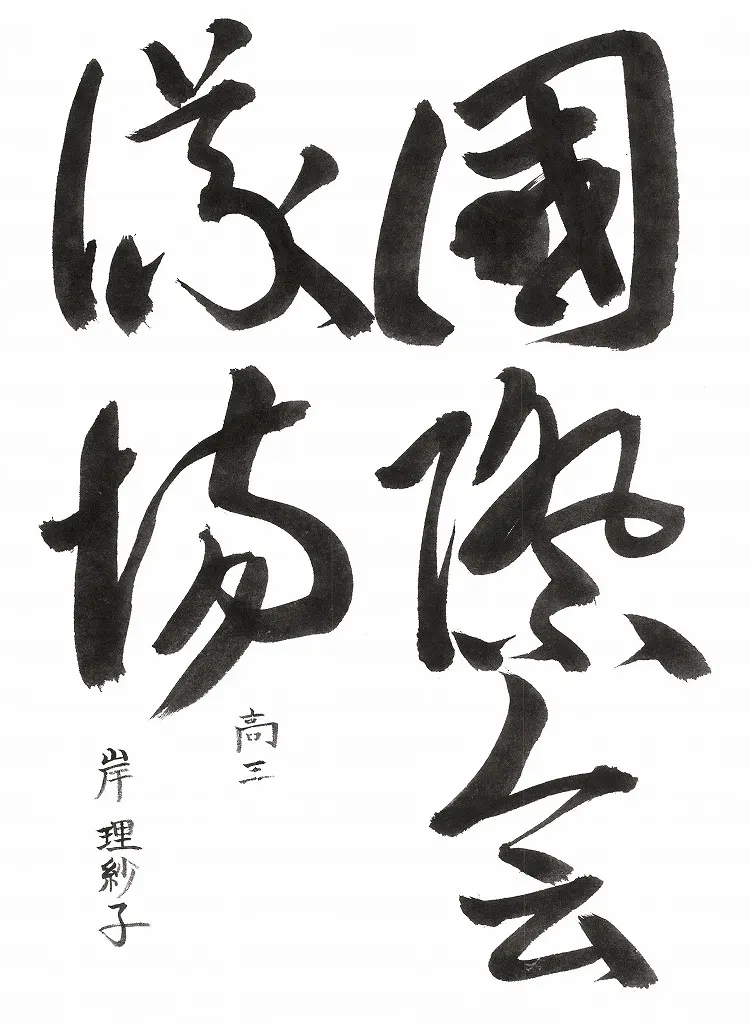 國際会
議場
高三
岸理紗子